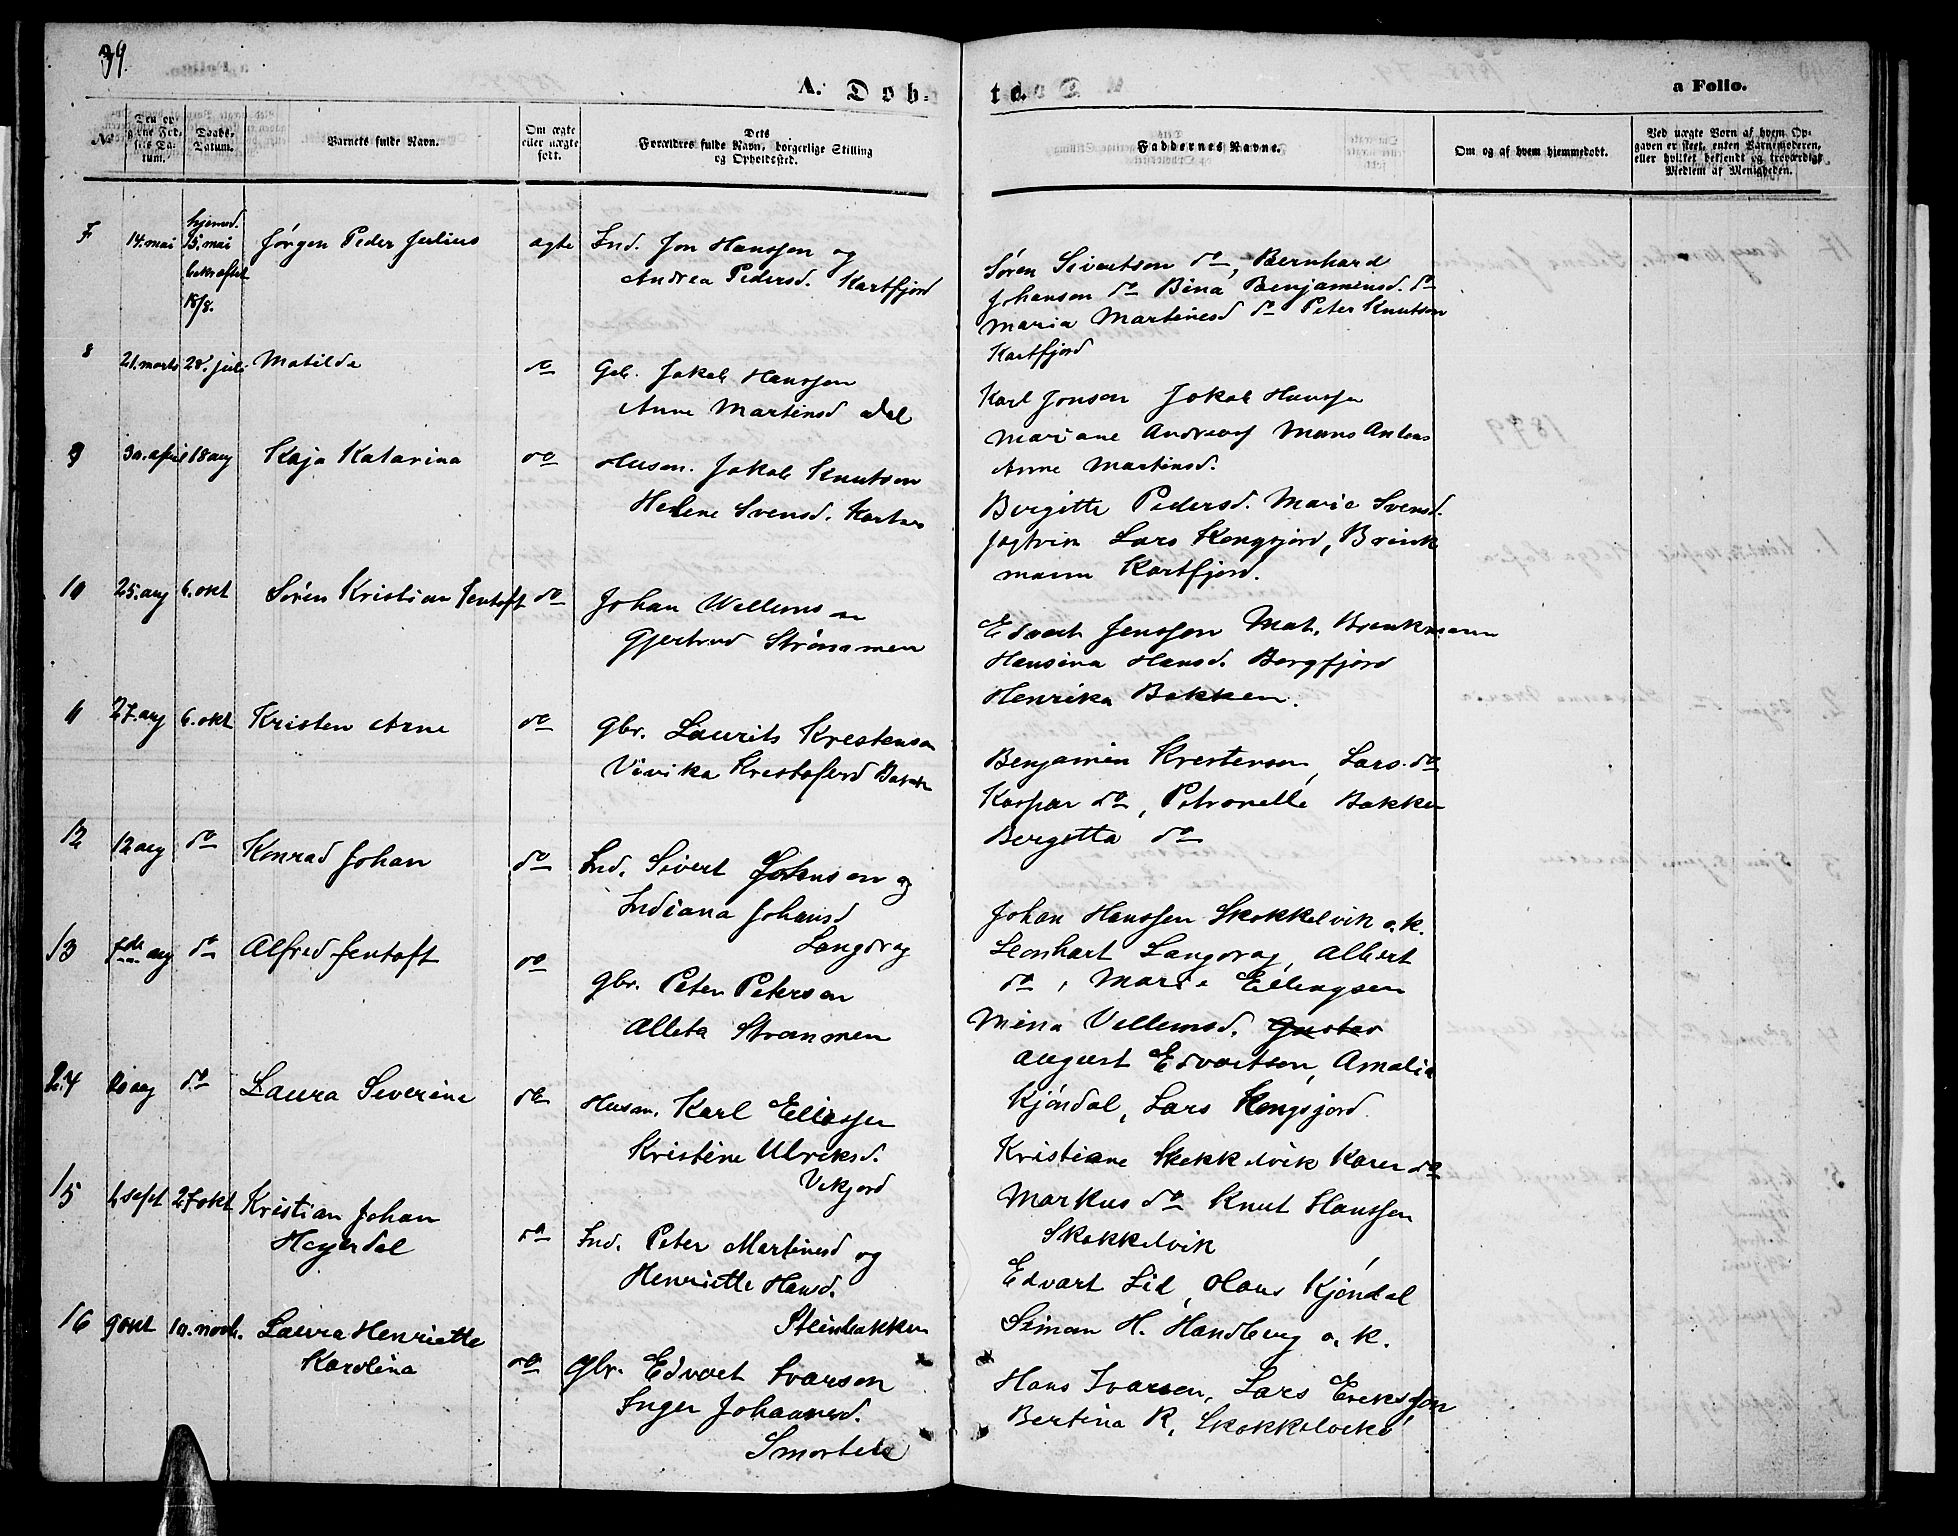 39.
A. Døb-
te.
a Folio.
No
Den opgivne Fødsels Datum.
Daabs-Datum.
Barnets fulde Navn.
Om ægte eller uægte født.
Dets Forældres fulde Navn, borgerlige Stilling og Opholdssted.
Faddernes Navne.
Om og af hvem hjemmedøbt.
Ved uægte Børn af hvem Opgaven er skeet, enten Barnemoderen, eller hvilket bekjendt og troværdigt Medlem af Menigheden.
7 14. mai hjemd. 15. mai bekræftet 18/8. Jørgen Peder Julius ægte Ind. Jon Hanssen og
Andrea Pedersd. Kartfjord
Søren Sivertsen do, Bernhard
Johansen do Bina Benjaminsd. do
Maria Martinesd do Peter Knutson
Kartfjord
8 21. marts 28. juli Matilde do Gb. Jakob Hanssen
Anne Martinsd
Karl Jonsen Jakob Hanssen
Mariane Andreas Mons Antons
Anne Martinsd.
9 30. april 18 aug Kaja Katarina do Husm. Jakob Knutson
Helene Svensd.
Bergitte Pedersd. Marie Svensd.
Lars Kongsjord, Brink
mann Kartfjord.
10 25. aug 6. okt Søren Kristian Jentoft do Johan Wellemsen
Gjertrud Strømmen
Edvart Jenssen Mat. Brenkmann
Hansina Hansd. Bergfjord
Henrika Bakken.
11 27. aug 6. okt Kristen Arne do Gbr. Laurits Krestensen
Vivika Kristofersd Bakken
Benjamin Krestensen, Lars do
Kaspar do, Petronelle Bakken
Bergitta do
12 12 aug do Konrad Johan do Ind. Sivert Johnsen og
Indiana Johansd
Langdrag
Johan Hanssen Skokkelvik o.k.
Leonhart Langdrag, Albert
do, Marie Ellingsen
13 7de aug do Alfred Jentoft do Gbr. Peter Peterson
Alleta Strømmen
Mina Vellemsd. Gustav
August Edvartsen, Amalia
Kjøndal, Lars Kongsjord.
14 20 aug do Laura Severine do Husm. Karl Eliassen
Kristine Ulriksd.
Vikjord
Kristiane Skokkelvik Karen do
Markus do Knut Hanssen
Skokkelvik
15 4 sept 27 okt Kristian Johan
Heyerdal
do Ind. Peter Martinsd og
Henriette Hansd.
Steinbakken
Edvart Lid, Hans Kjøndal
Siman H. Handberg o. k.
16 9 okt 10. novb. Laura Henriette
Karolina
do Gbr. Edvart Ivarsen
Inger Johannesd.
Hans Ivarsen, Lars Erikssøn
Bertina R. Skokkelvik